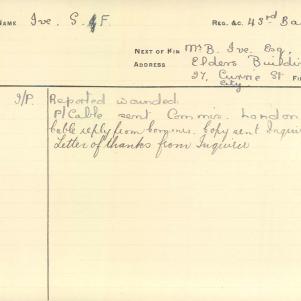 NAME Ive, S. G F. REG. &C. 43rd Ba
NEXT OF KIN Mr B. Ive Esq,
ADDRESS Elders Buildi
27, Currie St FI
City.
I/P. Reported wounded
P/Cable sent Commis. London
Cable reply from Commis. Copy sent Inquir
Letter of thanks from Inquirer